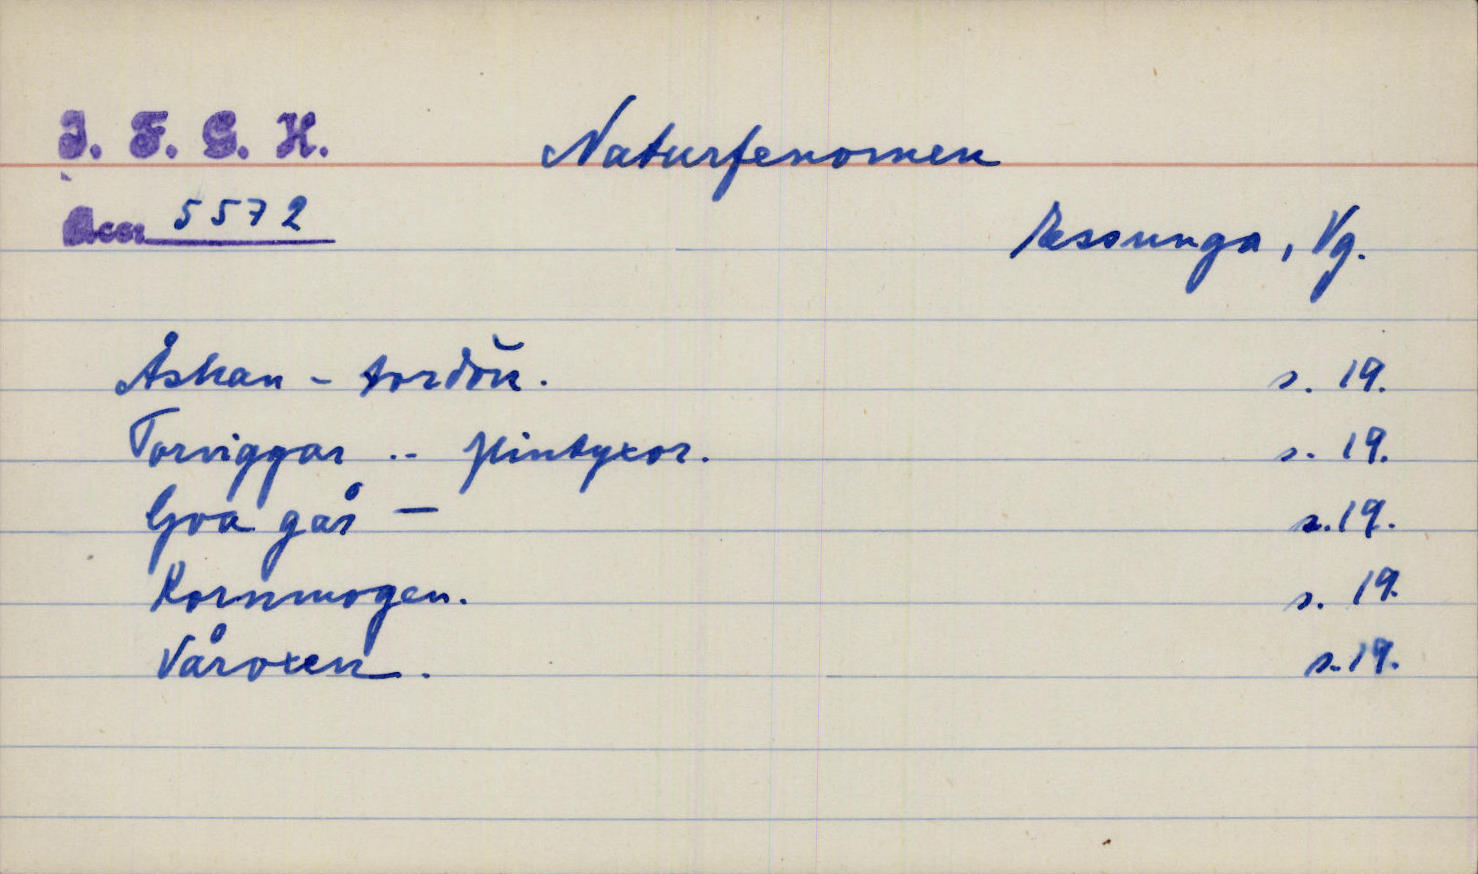 I. F. G. H.
Naturfenomen
Acc. 5572
Ressunga, Vg.
Åskan - tordön. s. 19.
Torviggar - flintyxor. s. 19.
Goa gås — s. 19.
Kornmogen. s. 19.
Våroxen. s. 19.